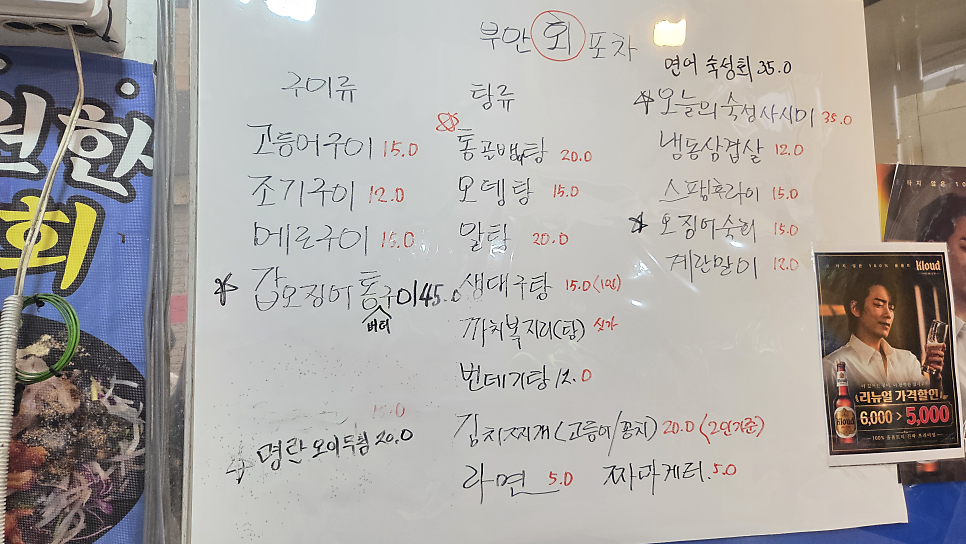 부안 회 포차
구이류
고등어구이 15.0
조기구이 12.0
메로구이 15.0
갑오징어 통구이 45.0
버터
15.0
명란오이두릅 20.0
탕류
통곰뱅탕 20.0
오뎅탕 15.0
알탕 20.0
생대구탕 15.0 (1인)
까치복지리(탕) 싯가
번데기탕 12.0
김치찌개 (고등어/꽁치) 20.0 (2인기준)
라면 5.0 짜파게티 5.0
연어 숙성회 35.0
오늘의숙성사시미 35.0
냉동삼겹살 12.0
스팸후라이 15.0
오징어숙회 15.0
계란말이 12.0
원한
회
Kloud
리뉴얼 가격할인
6,000 > 5,000